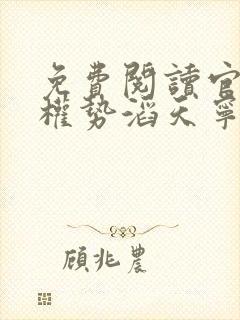 免費閱讀官
權勢滔天寧
顧兆農